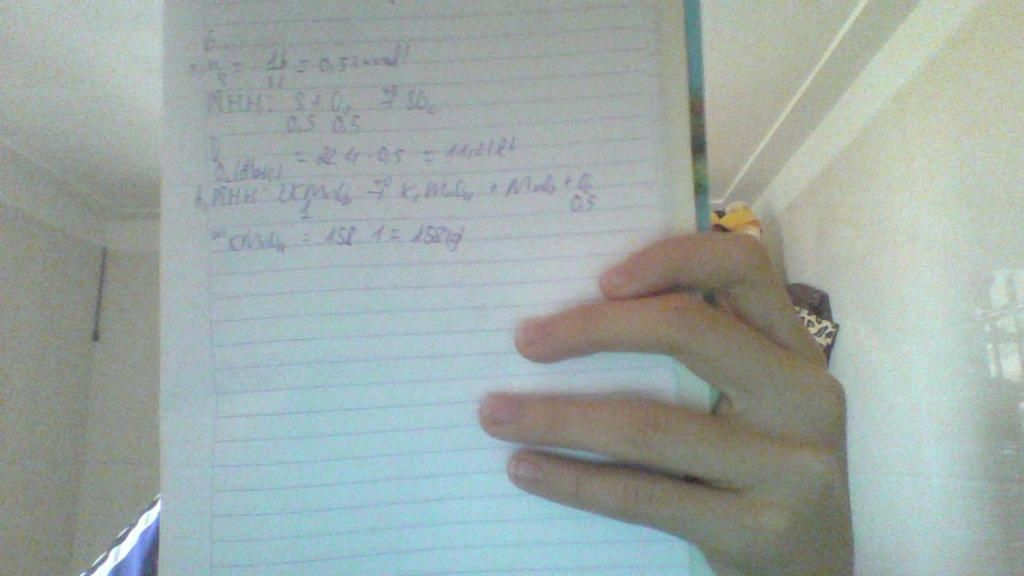 6
n S = 16 / 32 = 0,5 (mol)
PTHH: S + O2 → SO2
0,5 0,5
V O2(đktc) = 22,4 . 0,5 = 11,2 (lít)
b, PTHH: 2KMnO4 → K2MnO4 + MnO2 + O2
1 0,5
m KMnO4 = 158 . 1 = 158 (g)